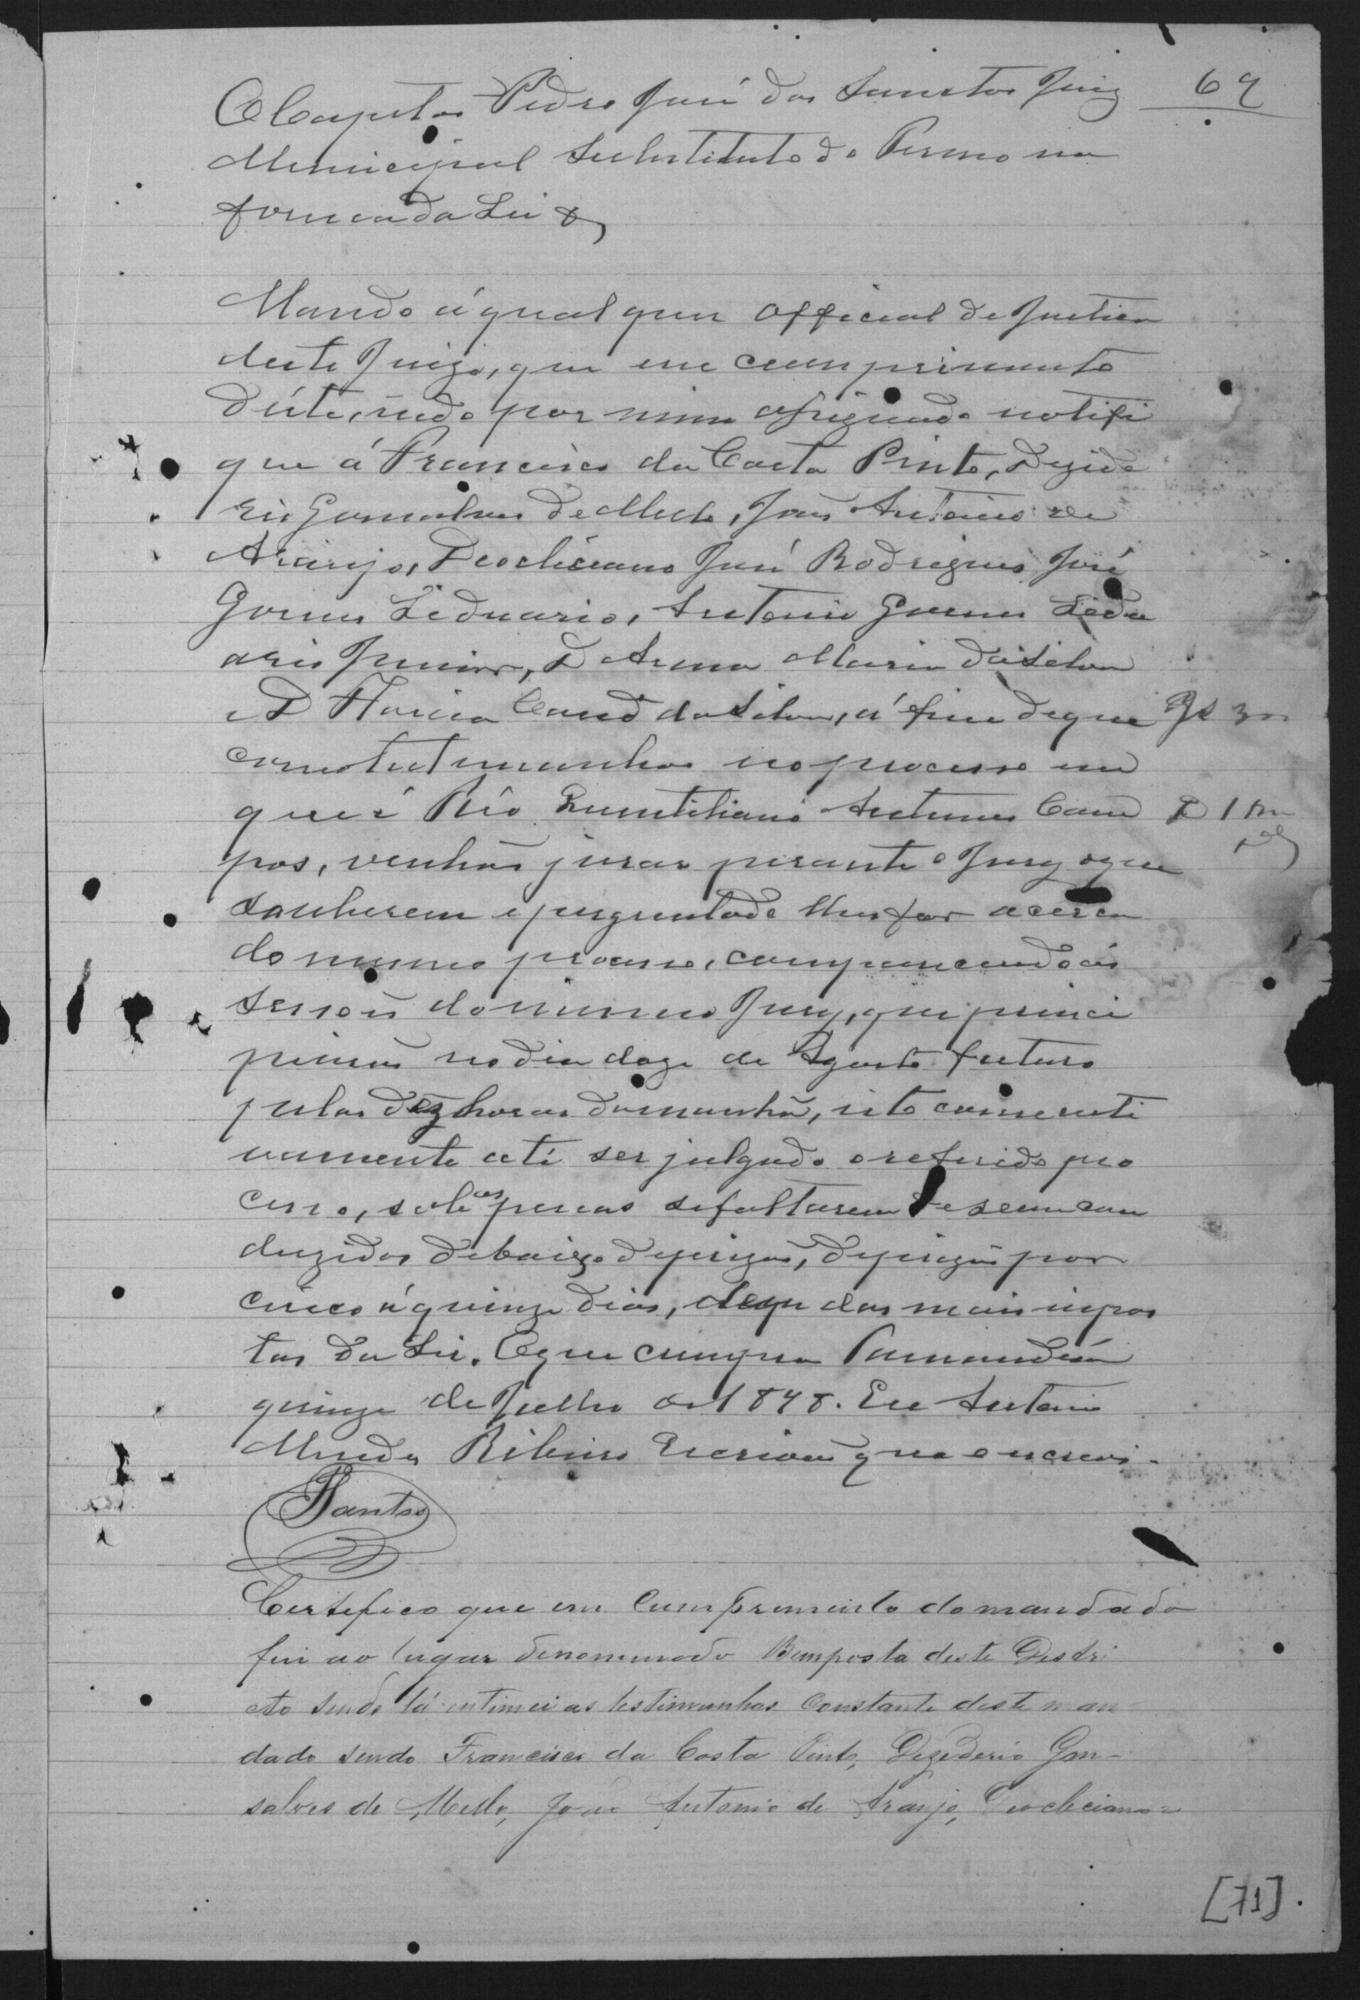 69
O Capitão Pedro José dos Sanctos Juiz
Municipal Substituto do Termo na
forma da Lei &
Mando á qualquer Official de Justiça
deste Juizo, que em cumprimento
déste, indo por mim assignado notifi
que á Francisco da Costa Pinto, Dezide
rio Gonsalves de Mello, João Antonio de
Araujo, Deocleciano José Rodrigues, José
Gomes Liduario, Antonio Gomes Lidu
ario Junior, D Anna Maria da Silva
e D Cand da Silva, á fim de que
como testemunhas no processo em
que é Réo Quintiliano Antunes Cam
pos, venhão jurar perante o Jury o que
souberem e perguntado lhes for acerca
do mesmo processo, comparecendo ás
Sessões do mesmo Jury, que princi
piarão no dia doze de Agosto futuro
pelas dez horas da manhã, isto consecuti
vamente até ser julgado o referido pro
cesso, sob as penas se faltarem de serem con
duzidos debaixo de prizão, de prizão por
cinco á quinze dias, e das mais impos
tas da Lei. O que cumpra
quinze de Julho de 1878. Eu Antonio
Mendes Ribeiro Escrivão que o escrevi.
Santos
Certefico que em Cumprimento do mandado
fui ao lugar denominado Bemposta deste Destri
cto sendo lá intimei as testimunhas Constante deste man
dado sendo Francisco da Costa Pinto, Dezederio Gon-
salves de Mello, João Antonio de Araujo, Deocleciano
[71].